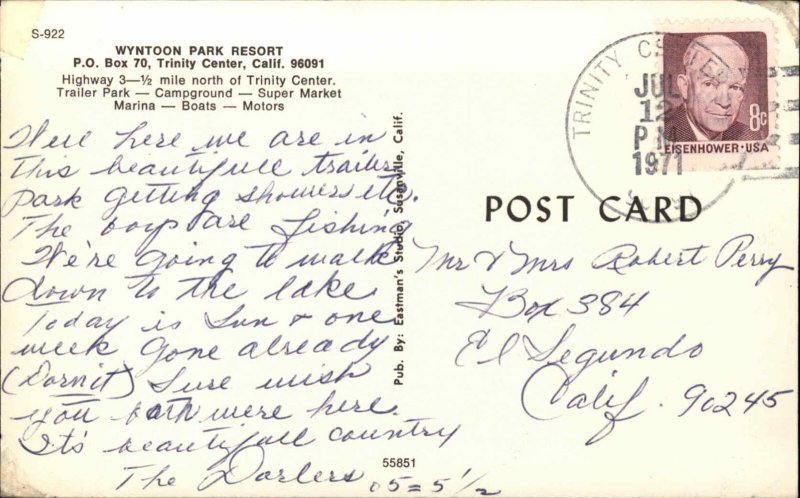 S-922
WYNTOON PARK RESORT
P.O. Box 70, Trinity Center, Calif. 96091
Highway 3—½ mile north of Trinity Center.
Trailer Park — Campground — Super Market
Marina — Boats — Motors
Well here we are in
This beautifull trailer
park getting showers etc.
The boys are fishing
We're going to walk
down to the lake
Today is Sun & one
week gone already
(Dornit) Sure wish
you both were here.
It's beautifull country
The Darlers
.05=5½
Pub. By: Eastman's Studio, Susanville, Calif.
55851
TRINITY
JUL
12
PM
1971
8c
EISENHOWER·USA
POST CARD
Mr & Mrs Robert Perry
Box 384
El Segundo
Calif. 90245